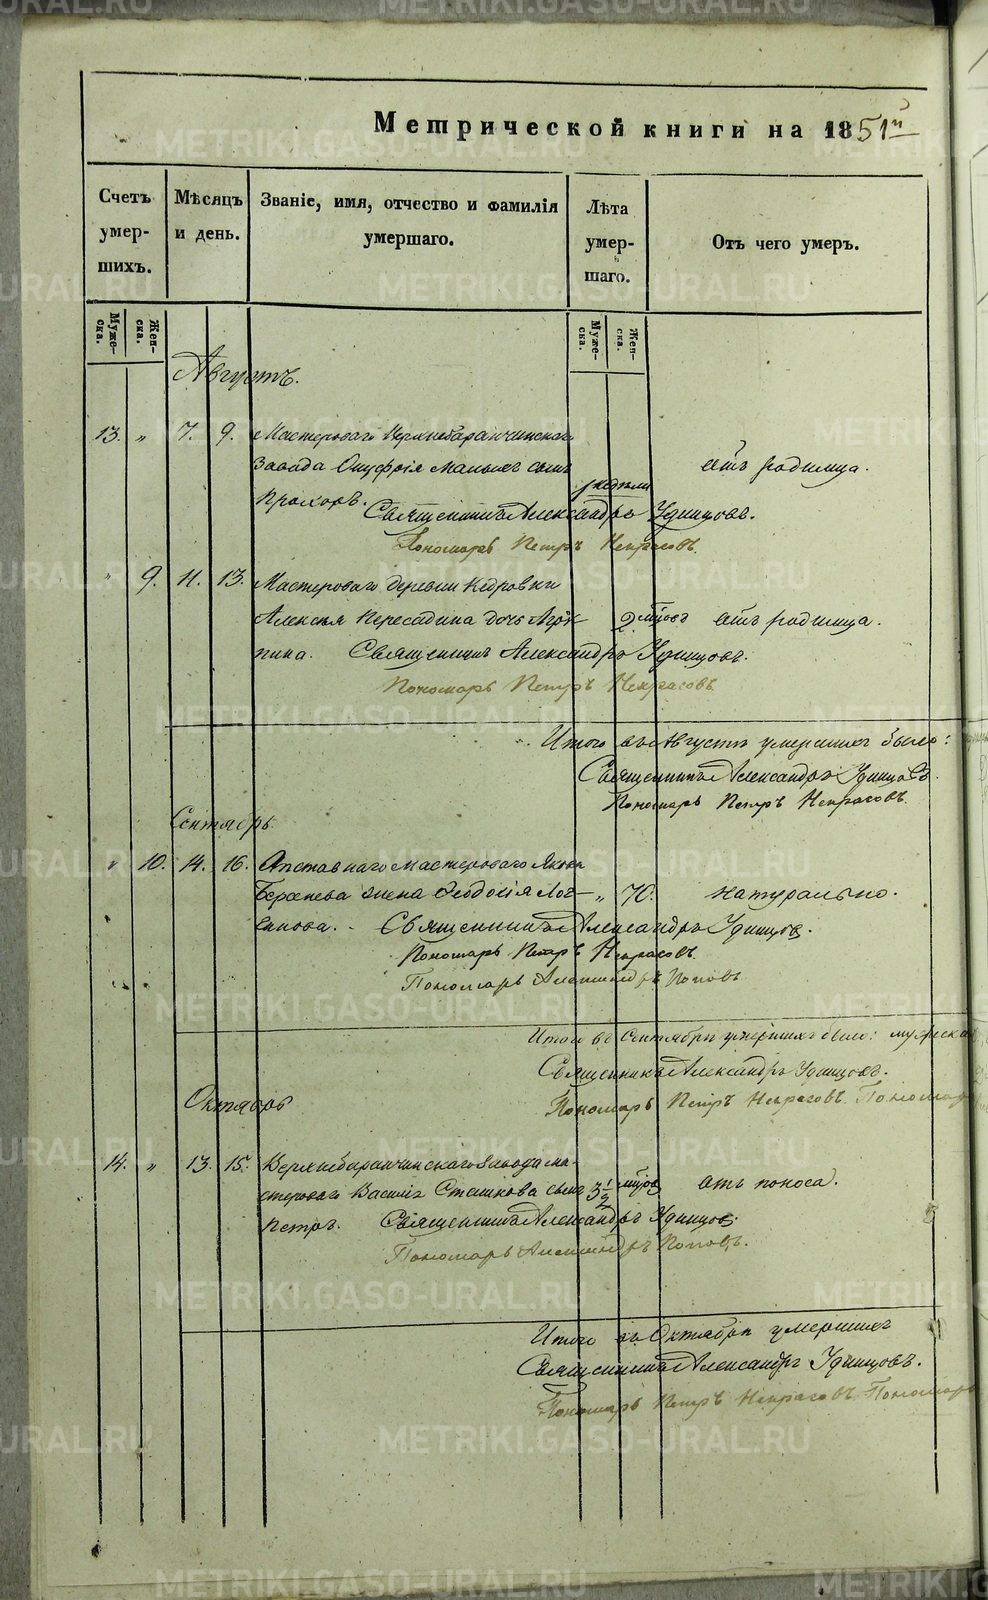 Метрической книги на 1851й
Счетъ умер- шихъ.
Мѣсяцъ и день.
Званіе, имя, отчество и фамилія умершаго.
Лѣта умер- шаго.
Отъ чего умеръ.
Муже- ска.
Жен- ска.
Муже- ска.
Жен- ска.
Августъ.
13. „ 7. 9. Мастероваго Верхнебаранчинскаго
Завода Онуфрія сынъ отъ родимца.
Прохоръ. недѣли
Священникъ Александръ Удинцовъ.
Пономарь Петръ Некрасовъ.
„ 9. 11. 13. Мастероваго деревни Кедровки
Алексѣя Пересадина дочь Агри- 2 мѣсяц отъ родимца.
пина. Священникъ Александръ Удинцовъ.
Пономарь Петръ Некрасовъ.
Итого въ Августѣ умершихъ было:
Священникъ Александръ Удинцовъ.
Пономарь Петръ Некрасовъ.
Сентябрь.
„ 10. 14. 16. Отставнаго мастероваго Якова
жена Феодосія Лог- „ 70. натурально.
Священникъ Александръ Удинцовъ.
Пономарь Петръ Некрасовъ.
Пономарь Александръ Поповъ
Итого въ Сентябрѣ умершихъ было: мужеска
Священникъ Александръ Удинцовъ.
Пономарь Петръ Некрасовъ. Пономарь
Октябрь
14. „ 13. 15. Верхнебаранчинскаго Завода ма-
стероваго Василія Сташкова сынъ 3 1/2 отъ поноса.
Петръ. Священникъ Александръ Удинцовъ.
Пономарь Александръ Поповъ.
Итого въ Октябрѣ умершихъ
Священникъ Александръ Удинцовъ.
Пономарь Петръ Некрасовъ Пономарь
METRIKI.GASO-URAL.RU